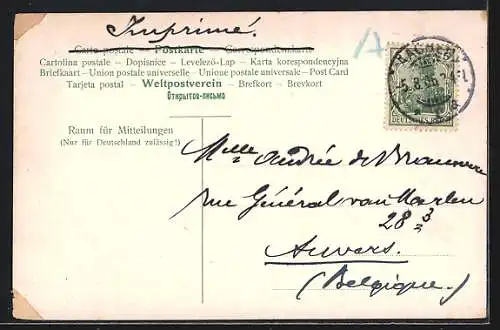 Imprimé.
Carte postale – Postkarte – Correspondenzkarte
Cartolina postale – Dopisnice – Levelező-Lap – Karta korespondencyjna
Briefkaart – Union postale universelle – Unione postale universale – Post Card
Tarjeta postal – Weltpostverein – Brefkort – Brevkort
Открытое письмо
Raum für Mitteilungen
(Nur für Deutschland zulässig!)
DEUTSCHES REICH
Mlle Andrée de
rue Général van Merlen
28 3
Anvers.
(Belgique)